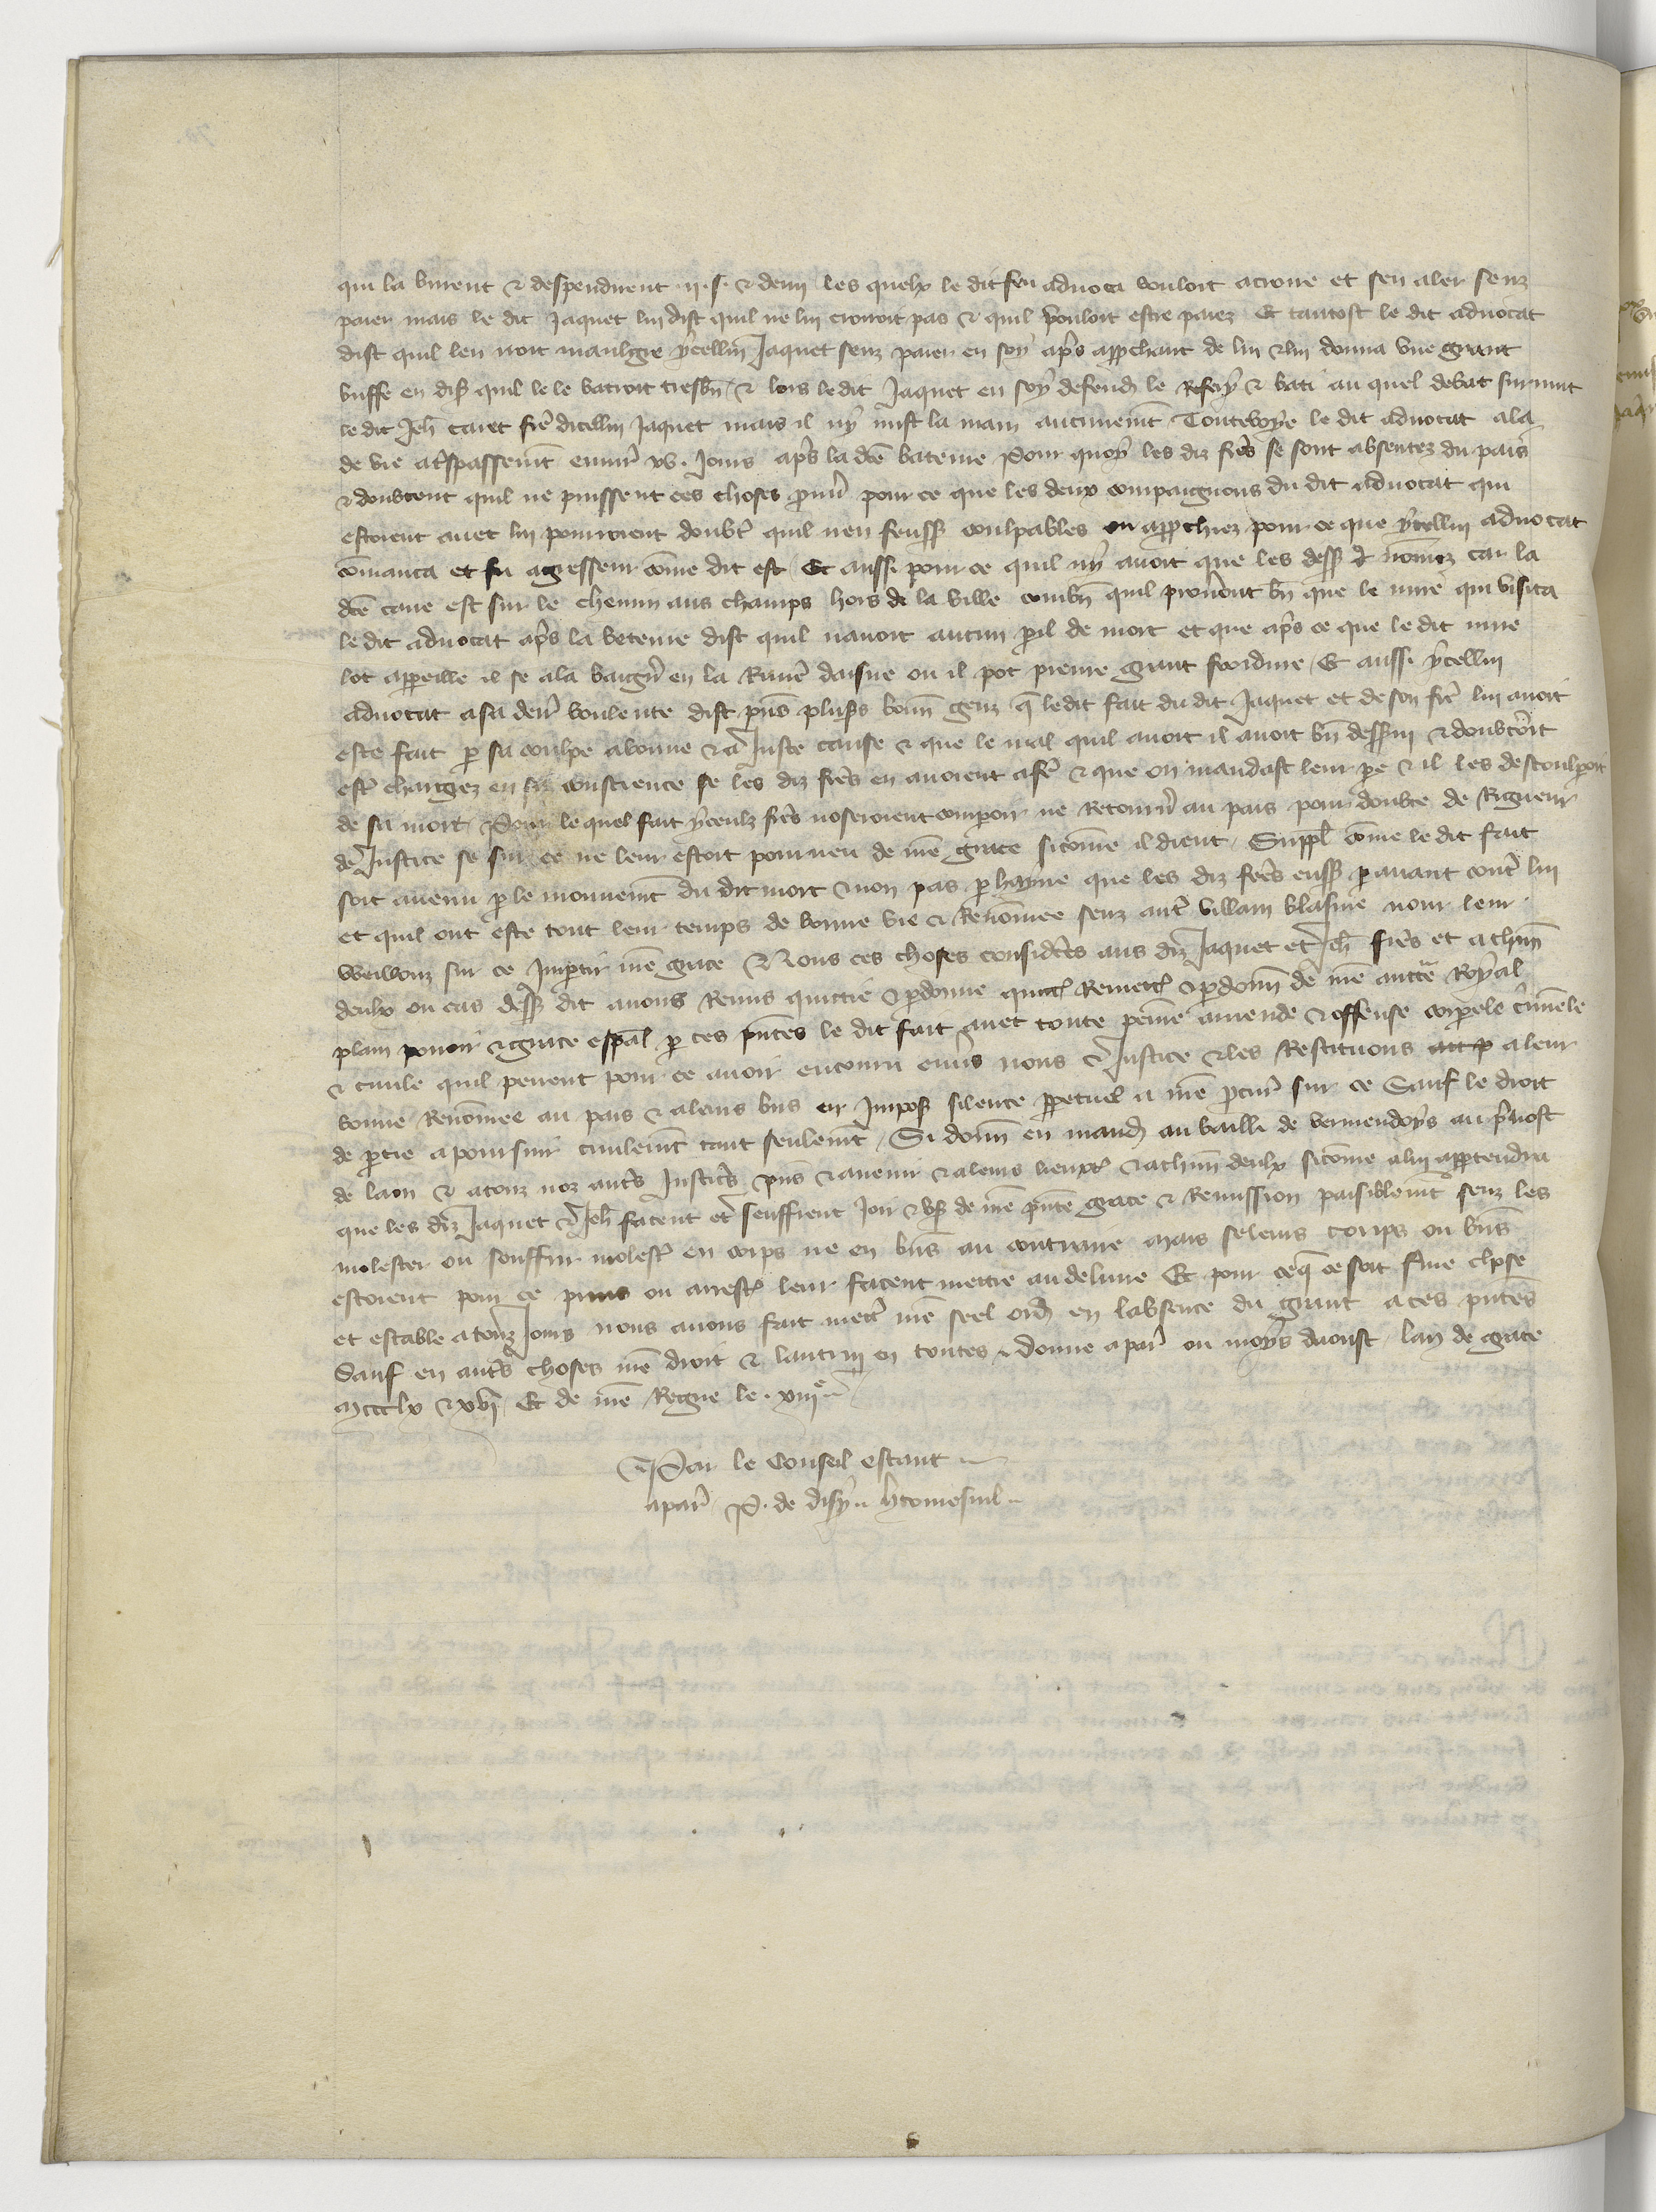 qui la burent & despendurent .ij. s. & demi les quelx le dit feu advocat vouloit acroire et sen aler senz
paier mais le dit Jaquet lui dist quil ne lui croiroit pas & quil vouloit estre paiez Et tantost le dit advocat
dist quil len iroit maulgre ycellui Jaquet senz paier en soy aps app̱chant de lui & lui donna une grant
buffe en dis̄ quil le le batroit tresbn̄ & lors ledit Jaquet en soy defend̄ le refery & bati au quel debat survint
le dit Jeh̄ caret fre dicellui Jaquet mais il ny mist la main aucunemt̄ Toutevoye le dit advocat ala
de vie a trespassemt̄ environ xv. jours aps la dcē bateure Pour quoy les diz freres se sont absentez du pais
& doubtent quil ne puissent ces choses p̱uver pour ce que les deux compaignons du dit advocat qui
estoient avec lui pourroient doubt̄ quil nen feuss̄ coulpables ou app̱chiez pour ce que ycellui advocat
cōmanca et fu agresseur cōme dit est Et aussi pour ce quil ny avoit que les dess̄ d̄ nōmez car la
dcē cave est sur le chemin aus champs hors de la ville combn̄ quil preuvent bn̄ que le mire qui visita
le dit advocat aps la beteure dist quil navoit aucun p̱il de mort et que aps ce que le dit mire
lot app̱eille il se ala baigner en la Riviere daisne ou il pot prenre grant froidure Et aussi ycellui
advocat a sa den̄ voulente dist p̄ns plus̄s bonn̄ genz q̄ ledit fait du dit Jaquet et de son fre lui avoit
este fait p̱ sa coulpe a bonne & a juste cause & que le mal quil avoit il avoit bn̄ dess̄vi & doubtoit
est̄ chargez en sa conscience se les diz freres en avoient a fe & que on mandast leur pe & il les descoulpoit
de sa mort Pour le quel fait yceulz freres noseroient comp̱oir ne Retourn̄ au pais pour doubte de Rigueur
de Justice se sur ce ne leur estoit pourveu de nr̄e grace si cōme il dient Suppl̄ cōme le dit fait
soit avenu p̱ le mouvemt̄ du dit mort & non pas p̱ hayne que les diz freres euss̄ p̱ avant cont̄ lui
et quil ont este tout leur temps de bonne vie & Renōmee senz aut̄ villain blasme nour leur
weiwonz sur ce imp̱tir nr̄e grace Et Nous ces choses considerees aus diz Jaquet et Jeh̄ freres et a chūn
deulx ou cas dess̄ dit avons Remis quictie & p̱donne quictōs Remettōs & p̱donn̄ de nr̄e auctē Royal
plain povoir & grace espāl p̱ ces pn̄tes le dit fait avec toute peine amende & offense corp̱ele c̄minele
& civile quil pevent pour ce avoir encouru envs̄ nous & Justice & les Restituons a leur
bonne Renōmee au pais & a leurs bn̄s en Impos̄ silence p̱petuel a nr̄e p̱cur̄ sur ce Sauf le droit
de p̱tie a poursuir civilemt̄ tant seulemt̄ Si donn̄ en mand̄ au bailli de vermendoys au p̱vost
de laon & a touz noz aut̄s Justiciers p̄ns & avenir & a leurs lieuxt̄ & a chūn deulx si cōme a lui app̱tendra
que les diz Jaquet & Jeh̄ facent et seuffrent joir & us̄ de nr̄e p̄nte grace & Remission paisiblemt̄ senz les
molester ou souffrir molest̄ en corps ne en bn̄s au contraire Mais se leurs corps ou bn̄s
estoient pour ce prins ou arrest̄ leur facent mettre au delivre Et pour ceq̄ ce soit ferme chose
et estable a touz jours nous avons fait mett̄ nr̄e seel ord̄ en labsence du grant a ces pn̄tes
Sauf en aut̄s choses nr̄e droit & lautrui en toutes Donne a par̄ ou moys daoust lan de grace
Mccclx & xvi Et de nr̄e Regne le .xiij.e
Par le Conseil estant
a par̄ P. de disy htomesnil